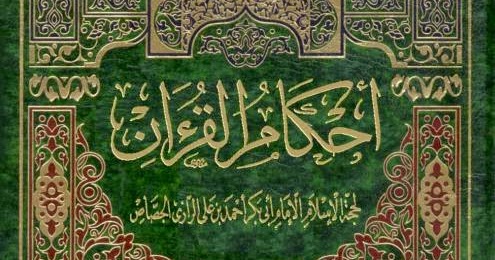 أحكام القرءان
لحجة الإسلام الإمام أبي بكر أحمد بن علي الرازي الجصاص